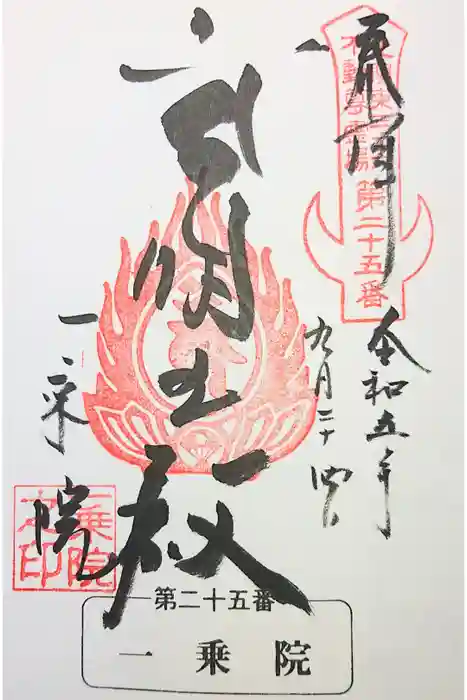 奉拝
不動尊霊場第二十五番
令和五年
九月二十四日
明王殿
一乗院
一乗院之印
第二十五番
一乗院